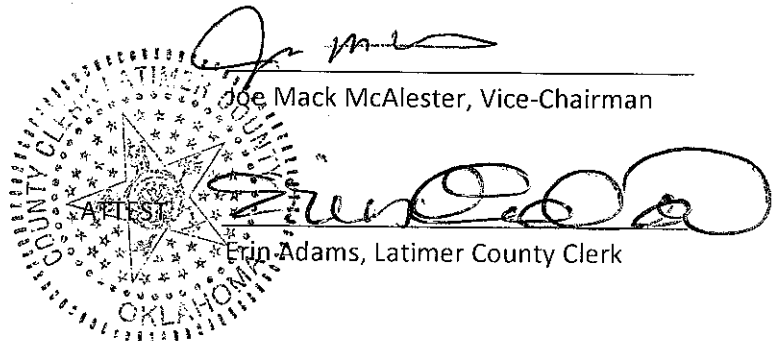 Joe Mack McAlester, Vice-Chairman
ATTEST
Erin Adams, Latimer County Clerk
COUNTY CLERK LATIMER COUNTY
OKLAHOMA